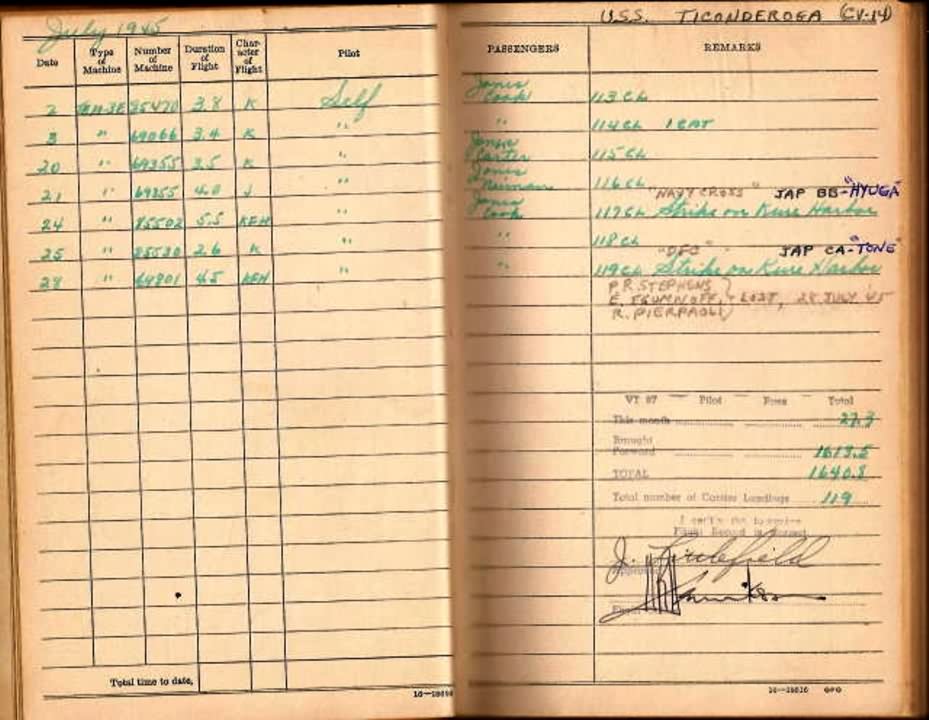 July 1945
Date Type of Machine Number of Machine Duration of Flight Character of Flight Pilot
2 85470 3.8 K Self
3 " 69066 3.4 K "
20 " 69355 3.5 K "
21 " 69355 4.0 J "
24 " 85502 5.5 KEH "
25 " 85530 2.6 K "
28 " 64801 4.5 KEH "
Total time to date,
U.S.S. TICONDEROGA (CV-14)
PASSENGERS REMARKS
Jones
Cook 113 CL
" 114 CL 1 CAT
Jones
Carter 115 CL
Jones
Neuman 116 CL
"NAVY CROSS" JAP BB-"HYUGA"
Jones
Cook 117 CL Strike on Kure Harbor
" 118 CL
"DFC" JAP CA-"TONE"
" 119 CL Strike on Kure Harbor
P.R. STEPHENS
LOST, 28 JULY '45
R. PIERPAOLI
VT 87 Pilot Pass Total
This month 27.3
Brought
Forward 1613.5
TOTAL 1640.8
Total number of Carrier Landings 119
I certify the foregoing
Flight Record is correct
J.
Approved